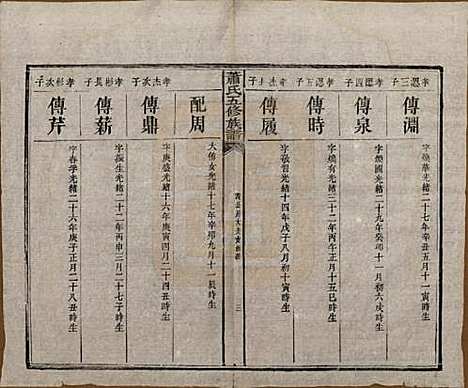 孝恩三子
傳淵
字煥華光緒二十七年辛丑五月十一寅時生
孝恩四子
傳泉
字煥國光緒二十九年癸卯十一月初六戌時生
孝恩五子
傳時
字煥有光緒三十二年丙午正月十五巳時生
孝杰長子
傳履
光緒十四年戊子八月初十寅時生
蕭氏五修族譜
三
配周
大傳女光緒十七年辛卯九月十一辰時生
孝杰次子
傳鼎
字庚盛光緒十六年庚寅四月二十四丑時生
孝彬長子
傳薪
字振生光緒二十二年丙申三月二十七子時生
孝彬次子
傳芹
字春學光緒二十六年庚子正月二十八丑時生